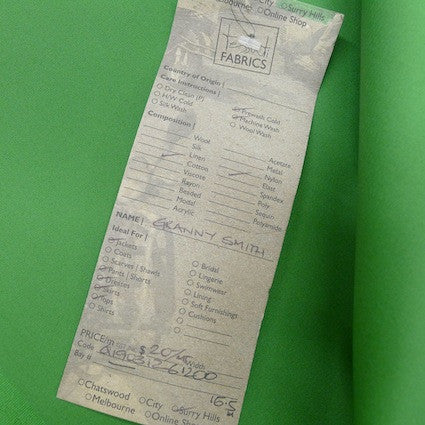 City Surry Hills
Melbourne Online Shop
FABRICS
Country of Origin |
Care Instructions |
Dry Clean (P) Prewash Cold
H/W Cold Machine Wash
Silk Wash Wool Wash
Composition |
Wool Acetate
Silk Metal
Linen Nylon
Cotton Elast
Viscose Spandex
Rayon Poly
Beaded Sequin
Modal Polyamide
Acrylic
NAME | GRANNY SMITH
Ideal For |
Jackets Bridal
Coats Lingerie
Scarves | Shawls Swimwear
Pants | Shorts Lining
Dresses Soft Furnishings
Skirts Cushions
Tops
Shirts
PRICE/m $20/m
Code
Bay #
Chatswood City Surry Hills
Melbourne Online Shop